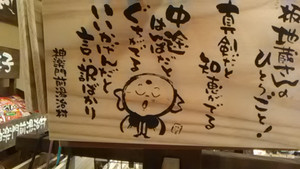 お地蔵さんの
ひとりごと!
真剣だと
知恵がでる
中途
半端だと
ぐちがでる
いいかげんだと
言い訳ばかり